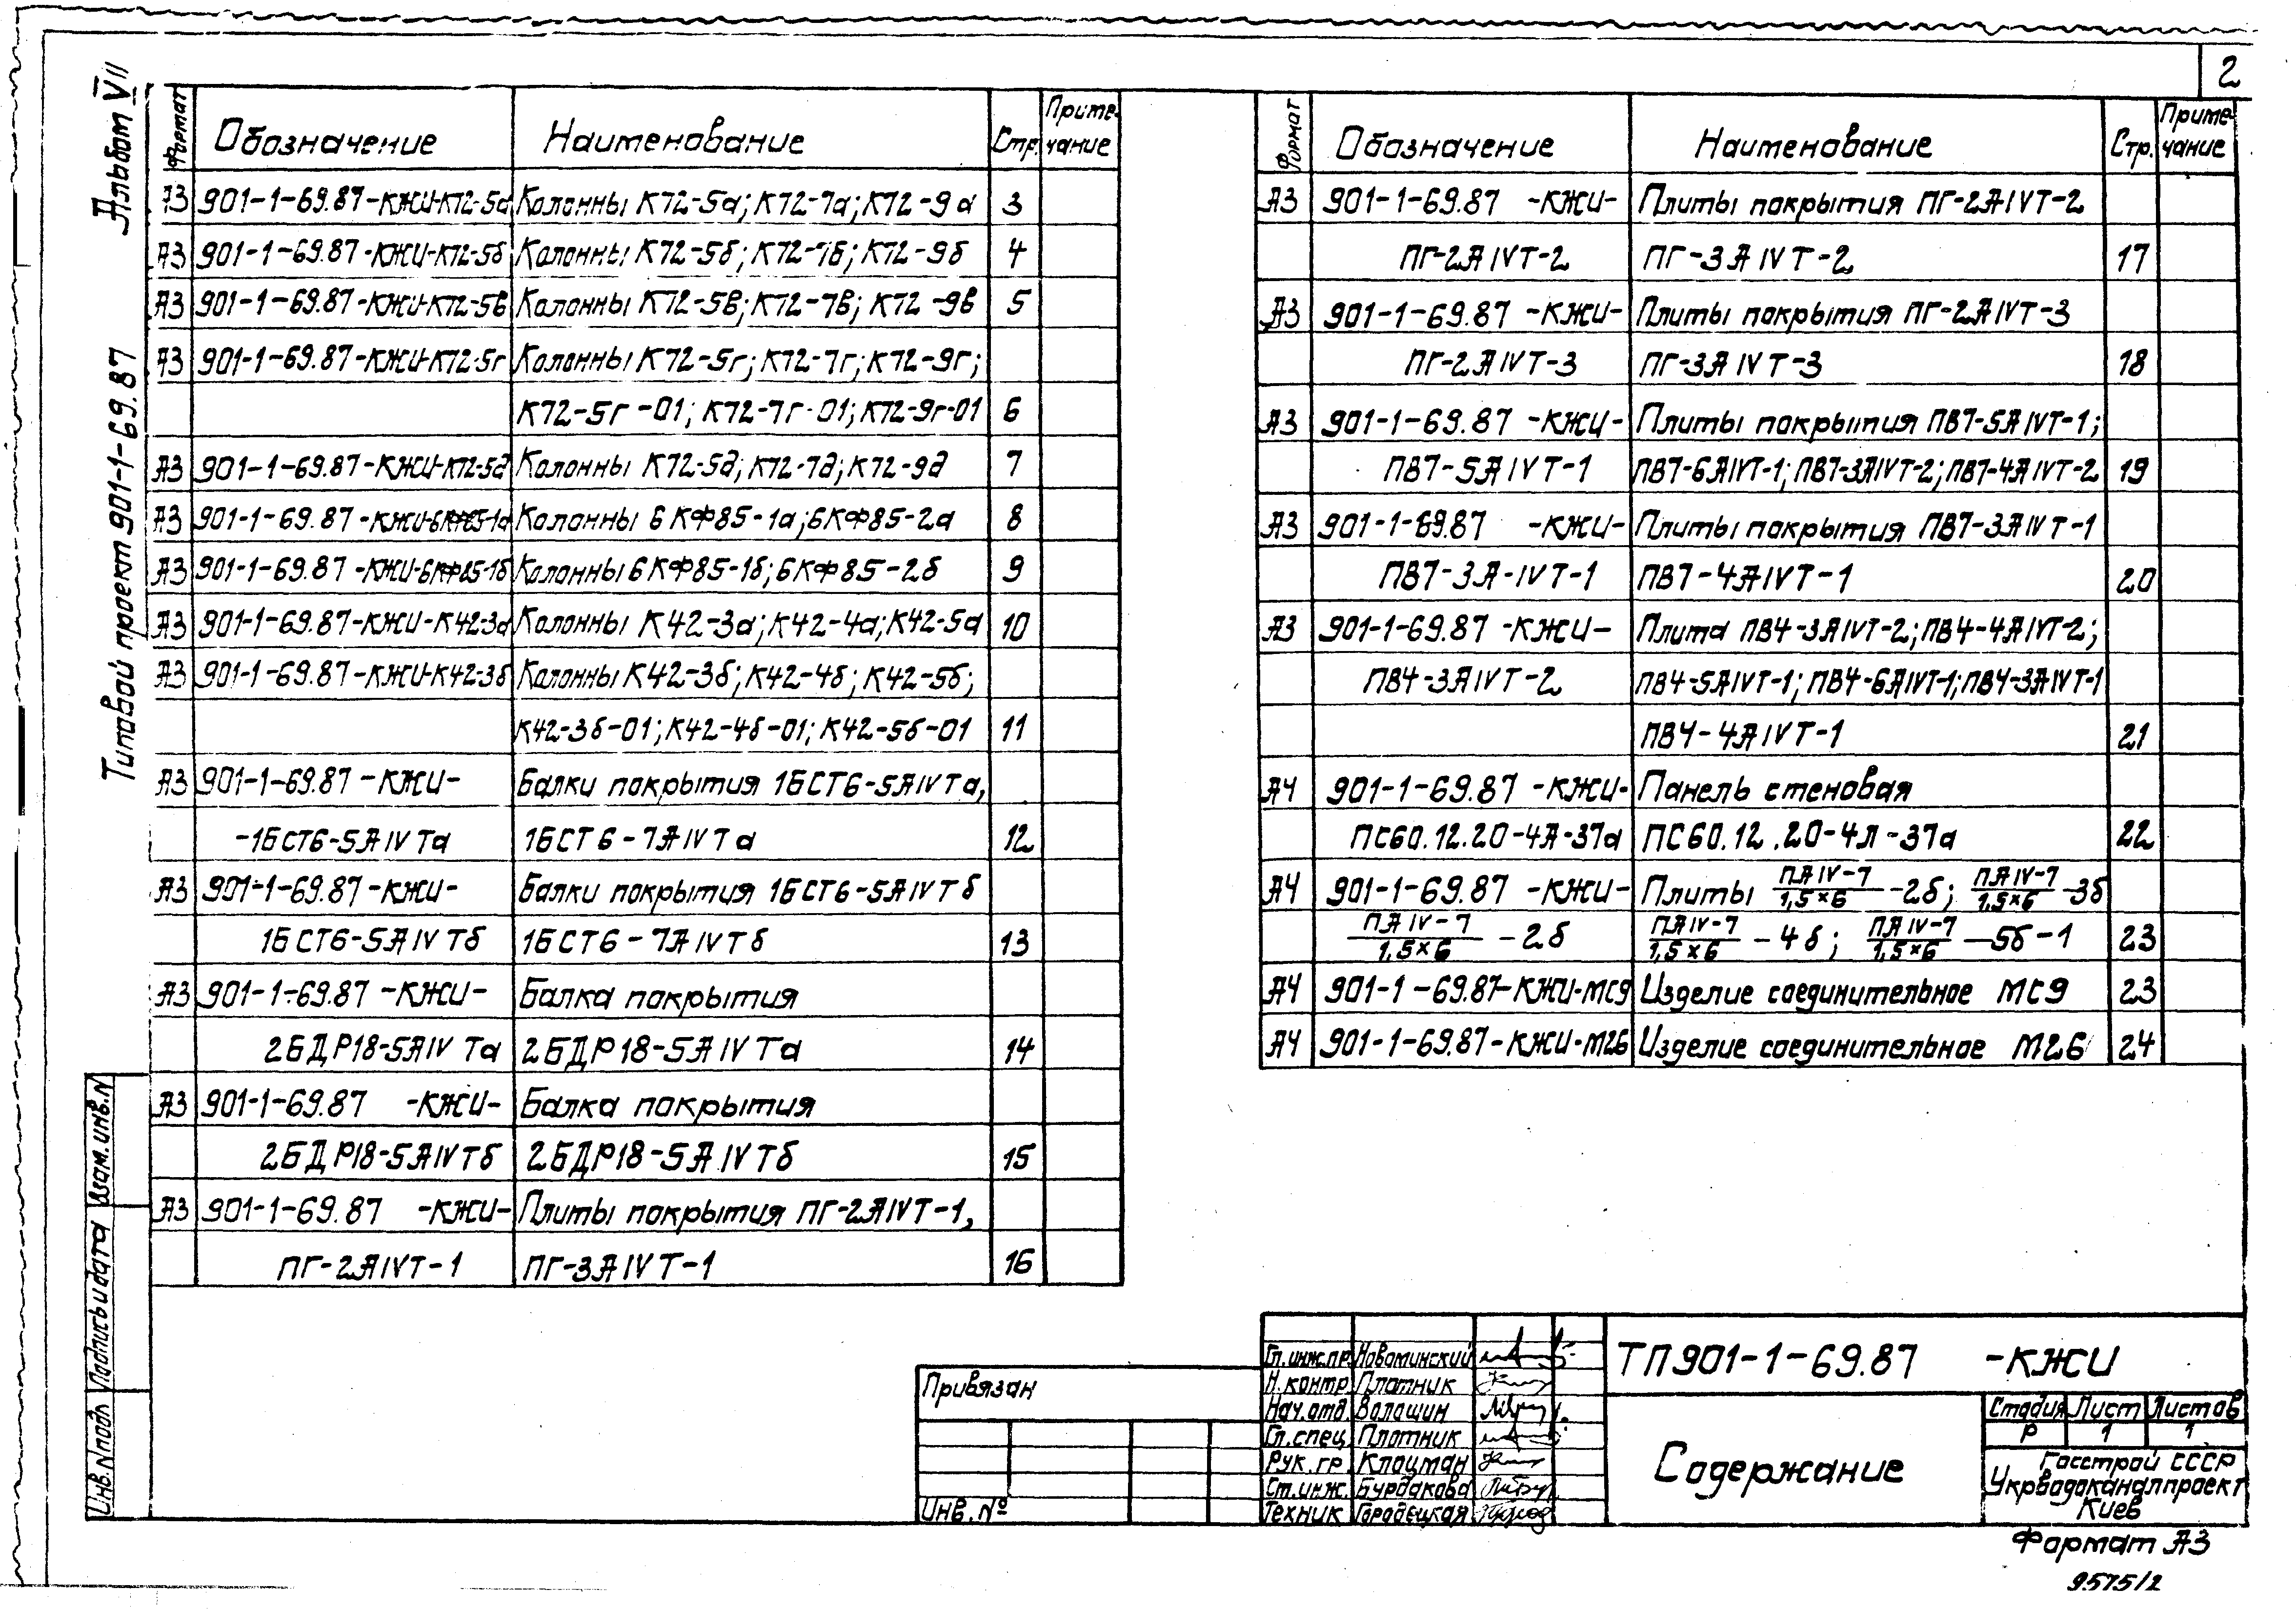 2
Альбом VII
Типовой проект 901-1-69.87
Формат Обозначение Наименование Стр. Приме-чание
А3 901-1-69.87-КЖИ-К72-5а Колонны К72-5а; К72-7а; К72-9а 3
А3 901-1-69.87-КЖИ-К72-5б Колонны К72-5б; К72-7б; К72-9б 4
А3 901-1-69.87-КЖИ-К72-5в Колонны К72-5в; К72-7в; К72-9в 5
А3 901-1-69.87-КЖИ-К72-5г Колонны К72-5г; К72-7г; К72-9г;
К72-5г-01; К72-7г-01; К72-9г-01 6
А3 901-1-69.87-КЖИ-К72-5д Колонны К72-5д; К72-7д; К72-9д 7
А3 901-1-69.87-КЖИ-6КФ85-1а Колонны 6КФ85-1а; 6КФ85-2а 8
А3 901-1-69.87-КЖИ-6КФ85-1б Колонны 6КФ85-1б; 6КФ85-2б 9
А3 901-1-69.87-КЖИ-К42-3а Колонны К42-3а; К42-4а; К42-5а 10
А3 901-1-69.87-КЖИ-К42-3б Колонны К42-3б; К42-4б; К42-5б;
К42-3б-01; К42-4б-01; К42-5б-01 11
А3 901-1-69.87-КЖИ- Балки покрытия 1БСТ6-5АIVТа,
-1БСТ6-5АIVТа 1БСТ6-7АIVТа 12
А3 901-1-69.87-КЖИ- Балки покрытия 1БСТ6-5АIVТб
1БСТ6-5АIVТб 1БСТ6-7АIVТб 13
А3 901-1-69.87-КЖИ- Балка покрытия
2БДР18-5АIVТа 2БДР18-5АIVТа 14
А3 901-1-69.87 -КЖИ- Балка покрытия
2БДР18-5АIVТб 2БДР18-5АIVТб 15
А3 901-1-69.87 -КЖИ- Плиты покрытия ПГ-2АIVТ-1,
ПГ-2АIVТ-1 ПГ-3АIVТ-1 16
Формат Обозначение Наименование Стр. Приме-чание
А3 901-1-69.87 -КЖИ- Плиты покрытия ПГ-2АIVТ-2
ПГ-2АIVТ-2 ПГ-3АIVТ-2 17
А3 901-1-69.87 -КЖИ- Плиты покрытия ПГ-2АIVТ-3
ПГ-2АIVТ-3 ПГ-3АIVТ-3 18
А3 901-1-69.87 -КЖИ- Плиты покрытия ПВ7-5АIVТ-1;
ПВ7-5АIVТ-1 ПВ7-6АIVТ-1; ПВ7-3АIVТ-2; ПВ7-4АIVТ-2 19
А3 901-1-69.87 -КЖИ- Плиты покрытия ПВ7-3АIVТ-1
ПВ7-3А-IVТ-1 ПВ7-4АIVТ-1 20
А3 901-1-69.87 -КЖИ- Плита ПВ4-3АIVТ-2; ПВ4-4АIVТ-2;
ПВ4-3АIVТ-2 ПВ4-5АIVТ-1; ПВ4-6АIVТ-1; ПВ4-3АIVТ-1
ПВ4-4АIVТ-1 21
А4 901-1-69.87 -КЖИ- Панель стеновая
ПС60.12.20-4Л-37а ПС60.12.20-4л-37а 22
А4 901-1-69.87 -КЖИ- Плиты ПАIV-7/1,5×6 -2б; ПАIV-7/1,5×6 -3б
ПАIV-7/1,5×6 -2б ПАIV-7/1,5×6 -4б; ПАIV-7/1,5×6 -5б-1 23
А4 901-1-69.87-КЖИ-МС9 Изделие соединительное МС9 23
А4 901-1-69.87-КЖИ-М26 Изделие соединительное М26 24
Инв.N подл Подпись и дата Взам.инв.N
Привязан
Инв.№
Гл.инж.пр. Новоминский
Н.контр Плотник
Нач.отд. Волошин
Гл.спец. Плотник
Рук.гр. Клоцман
Ст.инж. Бурдакова
Техник Городецкая
ТП901-1-69.87 -КЖИ
Содержание
Стадия Лист Листов
Р 1 1
Госстрой СССР
Укрводоканалпроект
Киев
Формат А3
9575/2